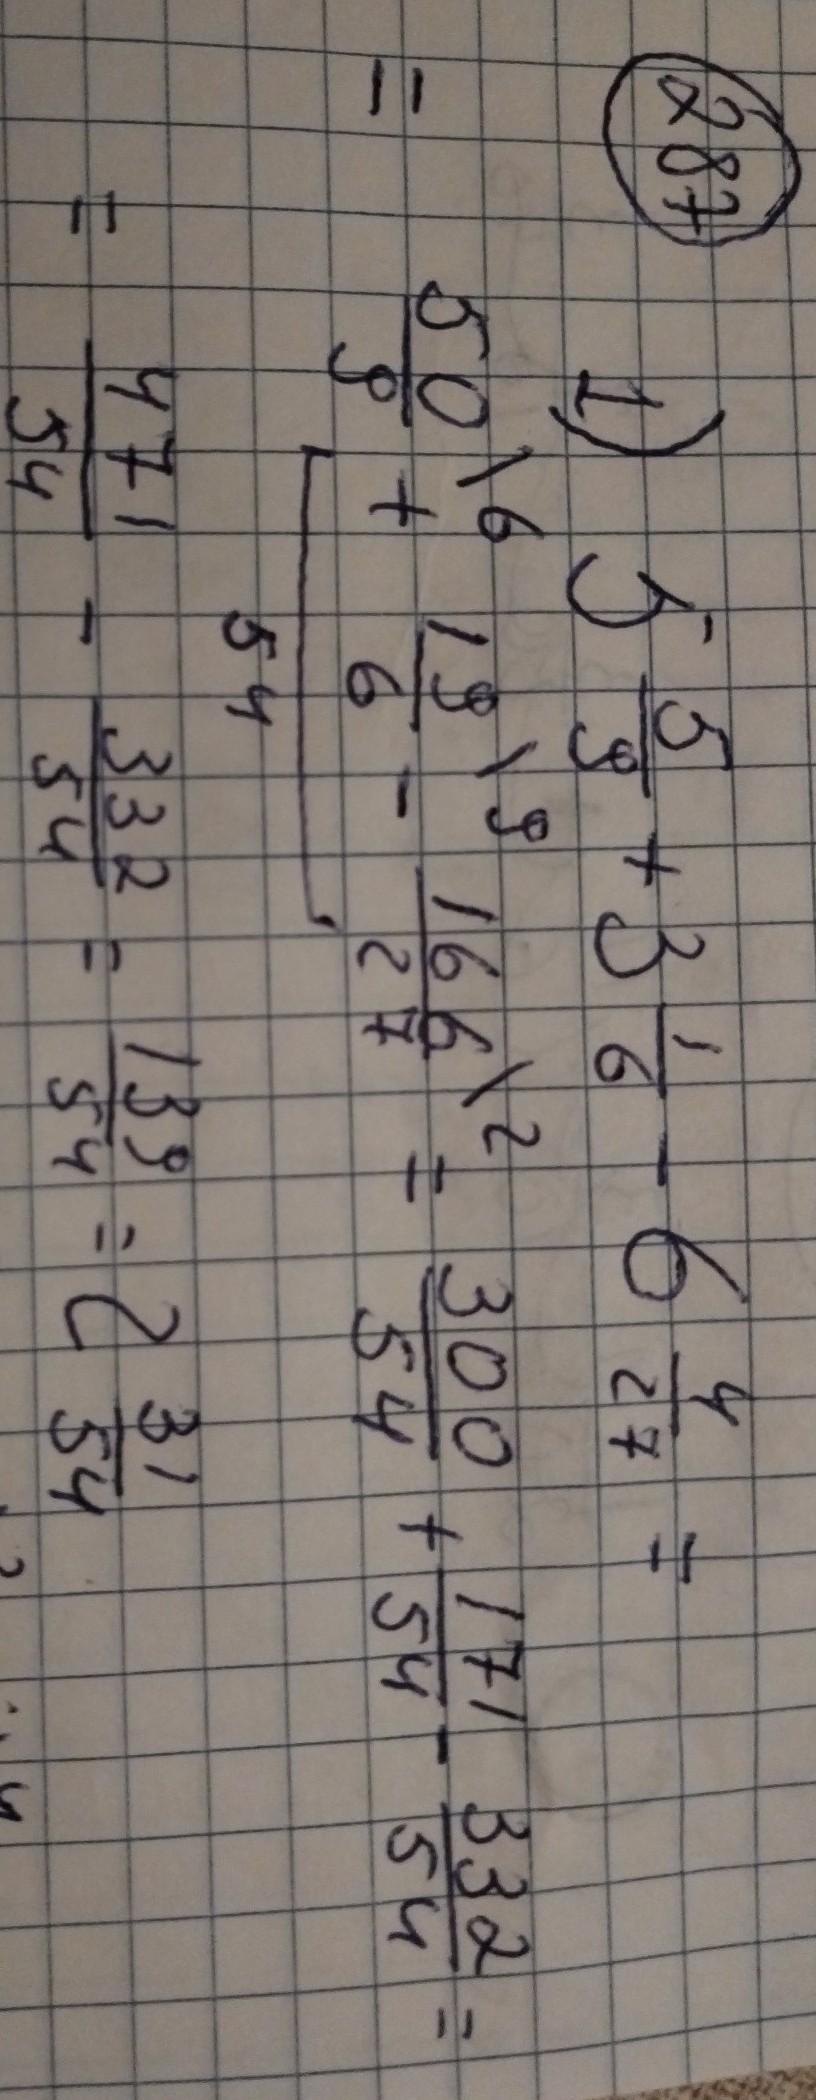 287
1) 5 5/9 + 3 1/6 - 6 4/27 =
= 50/9 \6 + 19/6 \9 - 166/27 \2 = 300/54 + 171/54 - 332/54 =
54
= 471/54 - 332/54 = 139/54 = 2 31/54